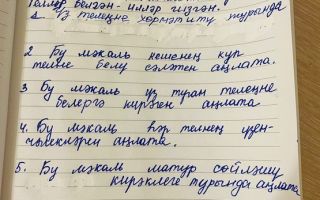 Телләр белгән - илләр гизгән.
1. Үз телеңне хөрмәтитү турында
2 Бу мәкаль кешенең күп
телне белү сәләтен аңлата.
3 Бу мәкаль үз туган телеңне
белергә кирәген аңлата
4. Бу мәкаль һәр телнең үзен-
чәлекләрен аңлата.
5. Бу мәкаль матур сөйләшү
кирәклеге турында аңлата